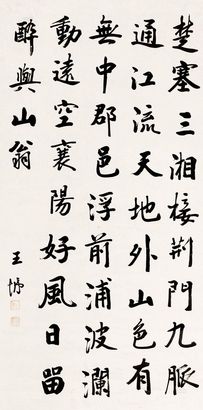 楚塞三湘接荆門九脈
通江流天地外山色有
無中郡邑浮前浦波瀾
動遠空襄陽好風日留
醉與山翁
王垿